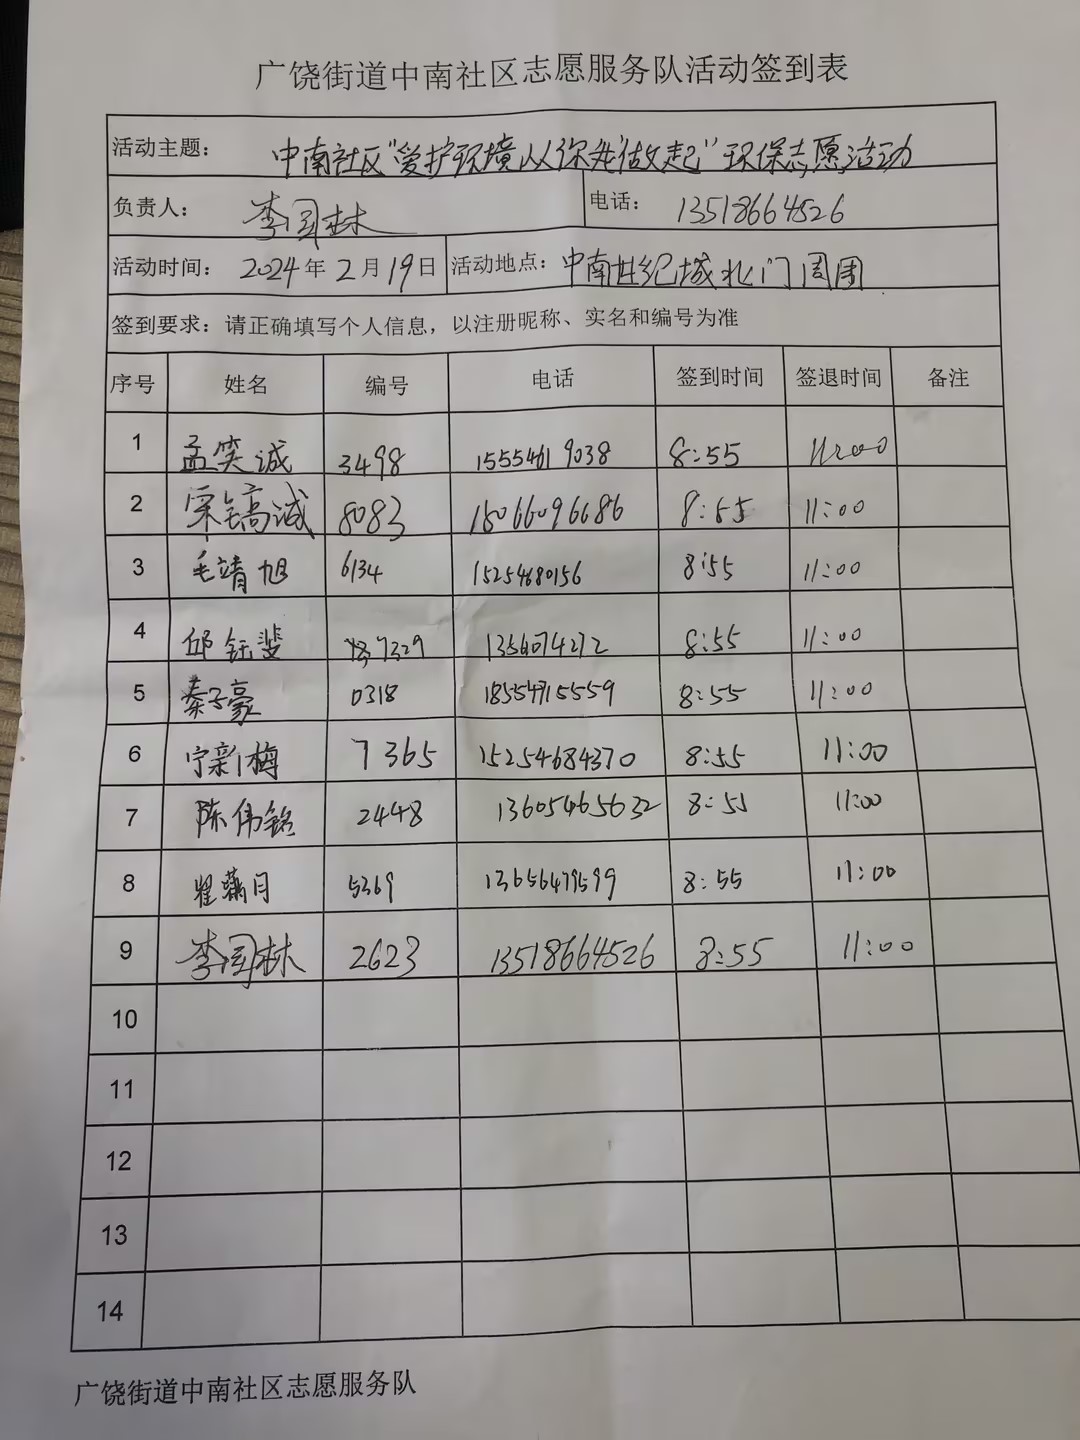 广饶街道中南社区志愿服务队活动签到表
活动主题： 中南社区“爱护环境从你我做起”环保志愿活动
负责人： 李国林 电话： 13518664526
活动时间： 2024年2月19日 活动地点： 中南世纪城北门周围
签到要求：请正确填写个人信息，以注册昵称、实名和编号为准
序号 姓名 编号 电话 签到时间 签退时间 备注
1 孟笑诚 3498 15554619038 8:55 11:00
2 宋镐诚 8083 15066096686 8:55 11:00
3 毛靖旭 6134 15254680156 8:55 11:00
4 邱钰斐 7329 8:55 11:00
5 秦子豪 0318 18554715559 8:55 11:00
6 宁新梅 7365 15254684370 8:55 11:00
7 陈伟铭 2448 13605465632 8:55 11:00
8 5369 13656479599 8:55 11:00
9 李国林 2623 13518664526 8:55 11:00
10
11
12
13
14
广饶街道中南社区志愿服务队